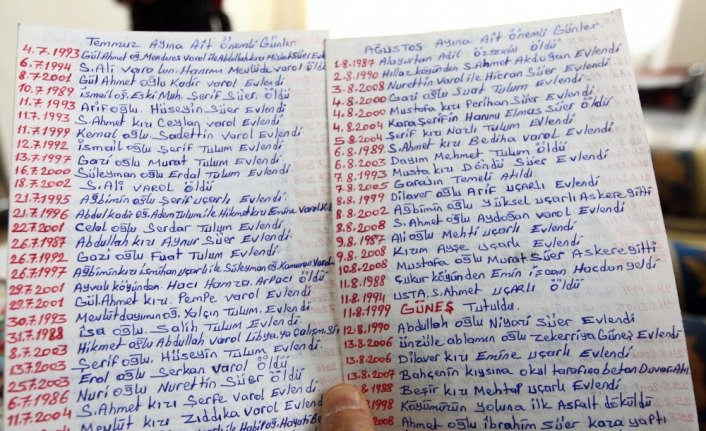 Temmuz Ayına Ait Önemli Günler
4.7.1993 Gül Ahmet oğ. Menderes varol ile Abdullah kızı
6.7.1994 S. Ali varolun. Hanımı Mevlüde varol öldü
8.7.2001 Gül Ahmet oğlu Kadir varol Evlendi
10.7.1989 ismail oğ. Eski Muh. Şerif Süer Öldü
11.7.1993 Arif oğlu. Hüseyin Süer Evlendi
11.7.1993 S. Ahmet kızı Ceylan varol Evlendi
11.7.1999 Kemal oğlu Sadettin varol Evlendi
12.7.1992 ismail oğlu Şerif Tulum Evlendi
13.7.1997 Gazi oğlu Murat Tulum Evlendi
16.7.2000 Süleyman oğlu Erdal Tulum Evlendi
18.7.2002 S. Ali VAROL ÖLDÜ
21.7.1995 Ağbimin oğlu Şerif uçarlı Evlendi
21.7.1996 Abdulkadir oğ. Adem Tulum ile Hikmet kızı Emine Varol
22.7.2001 Celal oğlu Serdar Tulum Evlendi
26.7.1987 Abdullah kızı Aynur Süer Evlendi
26.7.1992 Gazi oğlu Fuat Tulum Evlendi
26.7.1997 Ağbimin kızı ismihan uçarlı ile Süleyman oğ. Kamuran
29.7.2001 Ayvalı köyünden. Hacı Hamza. Arpacı öldü
29.7.2001 Gül. Ahmet kızı. Pempe varol Evlendi
30.7.1993 Mevlüt dayımın og. Yalçın Tulum. Evlendi
31.7.1988 isa oğlu. Salih Tulum Evlendi
8.7.2003 Hikmet oğlu Abdullah varol Libya.ya
13.7.2003 Şerif oğlu. Hüseyin Tulum Evlendi
25.7.2003 Erol oğlu Serkan varol Öldü
6.7.1986 Nuri oğlu Nurettin Süer öldü
11.7.2004 S. Ahmet kızı Şerfe varol Evlendi
Mevlüt kızı Ziddıka varol Evlendi
AĞUSTOS Ayına Ait önemli Günler
1.8.1987 Alayurtan Adil ÖZTEKİN ÖLDÜ
2.8.1990 Hıllaz köyünden S. Ahmet Akdoğan Evlendi
3.8.2008 Nurettin Varol ile Hicran Süer Evlendi
4.8.2000 Gazi oğlu Suat Tulum Evlendi
4.8.2000 Mustafa kızı Perihan Süer Evlendi
4.8.2004 Kara Şerifin Hanımı Elmas Süer Öldü
5.8.2004 Şerif kızı Nazlı Tulum Evlendi
6.8.1989 S. Ahmet kızı Bediha varol Evlendi
6.8.2003 Dayım Mehmet Tulum Öldü
7.8.1993 Musta kızı Döndü Süer Evlendi
7.8.2005 Garajın Temeli Atıldı
8.8.1999 Dilaver oğlu Arif uçarlı Evlendi
8.8.2002 Ağbimin oğlu Yüksel uçarlı Askere gitti
8.8.2008 S. Ahmet oğlu Aydoğan varol Evlendi
9.8.1987 Ali oğlu Mehti uçarlı Evlendi
9.8.2008 Kızım Ayşe uçarlı Evlendi
10.8.2008 Mustafa oğlu Murat Süer Askere gitti
11.8.1988 Çukur köyünden Emin işcan Hacdan geldi
11.8.1994 USTA. S. Ahmet UÇARLI ÖLDÜ
11.8.1999 GÜNEŞ Tutuldu.
12.8.1990 Abdullah oğlu Niyazi Süer Evlendi
13.8.2006 ünzüle ablamın oğlu Zekerriya Güneş Evlendi
13.8.2006 Dilaver kızı Emine uçarlı Evlendi
13.8.2007 Bahçenin kıyısına okul tarafına beton
1988 Beşir kızı Mehtap uçarlı Evlendi
1998 Köyümüzün yoluna ilk Asfalt döküldü
2008 Ahmet oğlu ibrahim Süer kaza yaptı